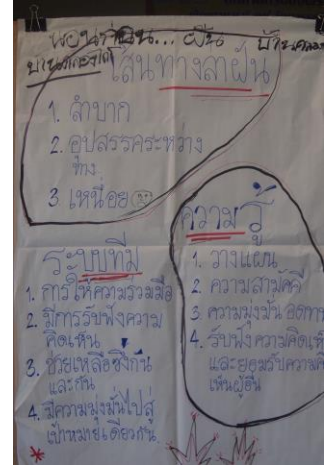 ฝัน
เส้นทางล่าฝัน
1. ลำบาก
2. อุปสรรคระหว่าง
ทาง
3. เหนื่อย
ความรู้
1. วางแผน
2. ความสามัคคี
3. ความมุ่งมั่น อดทน
4. รับฟังความคิดเห็
และยอมรับความคิ
เห็นผู้อื่น
ระบบทีม
1. การให้ความร่วมมือ
2. มีการรับฟังความ
คิดเห็น
3. ช่วยเหลือซึ่งกัน
และกัน
4. มีความมุ่งมั่นไปสู่
เป้าหมายเดียวกัน